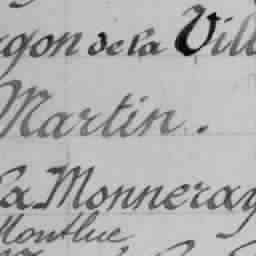 gon de la Vill
Martin.
La Monneray
Montluc